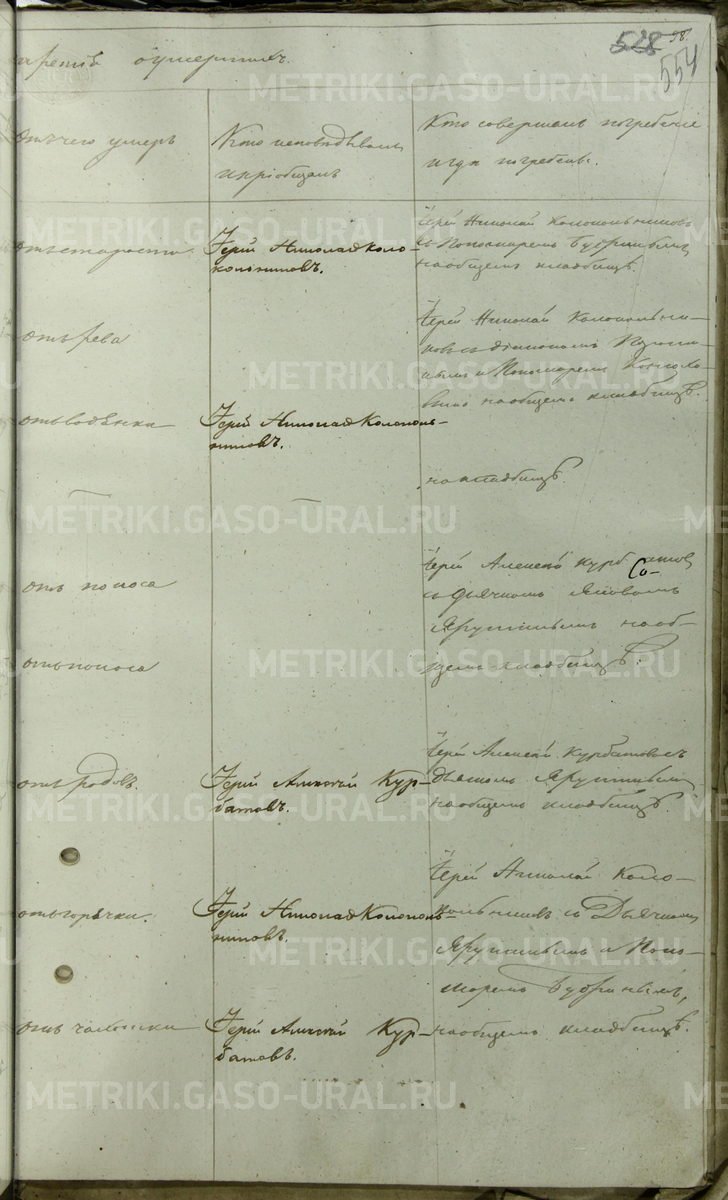 528 58.
554
третiя о умершихъ.
отъ чего умеръ
Кто исповѣдывалъ
и прiобщалъ
Кто совершалъ погребенiе
и гдѣ погребенъ.
отъ старости
Iерей Николай Коло-
кольниковъ.
Iерей Николай Колокольниковъ
съ Пономаремъ
на общемъ кладбищѣ.
отъ рева
Iерей Николай Колокольни-
ковъ съ дiакономъ
и Пономаремъ
на общемъ кладбищѣ.
отъ водянки
Iерей Николай Кокололь-
никовъ.
на кладбищѣ.
отъ поноса
Iерей Алексѣй Курбатовъ
Со-
съ дьячкомъ
на об-
щемъ кладбищѣ.
отъ поноса
отъ родовъ.
Iерей Алексѣй Кур-
батовъ.
Iерей Алексѣй Курбатовъ съ
на общемъ кладбищѣ.
отъ горячки.
Iерей Николай Колоколь-
никовъ.
Iерей Николай Коло-
кольниковъ съ Дьячкомъ
и Поно-
маремъ
отъ чахотки
Iерей Алексѣй Кур-
батовъ.
на общемъ кладбищѣ.
METRIKI.GASO-URAL.RU